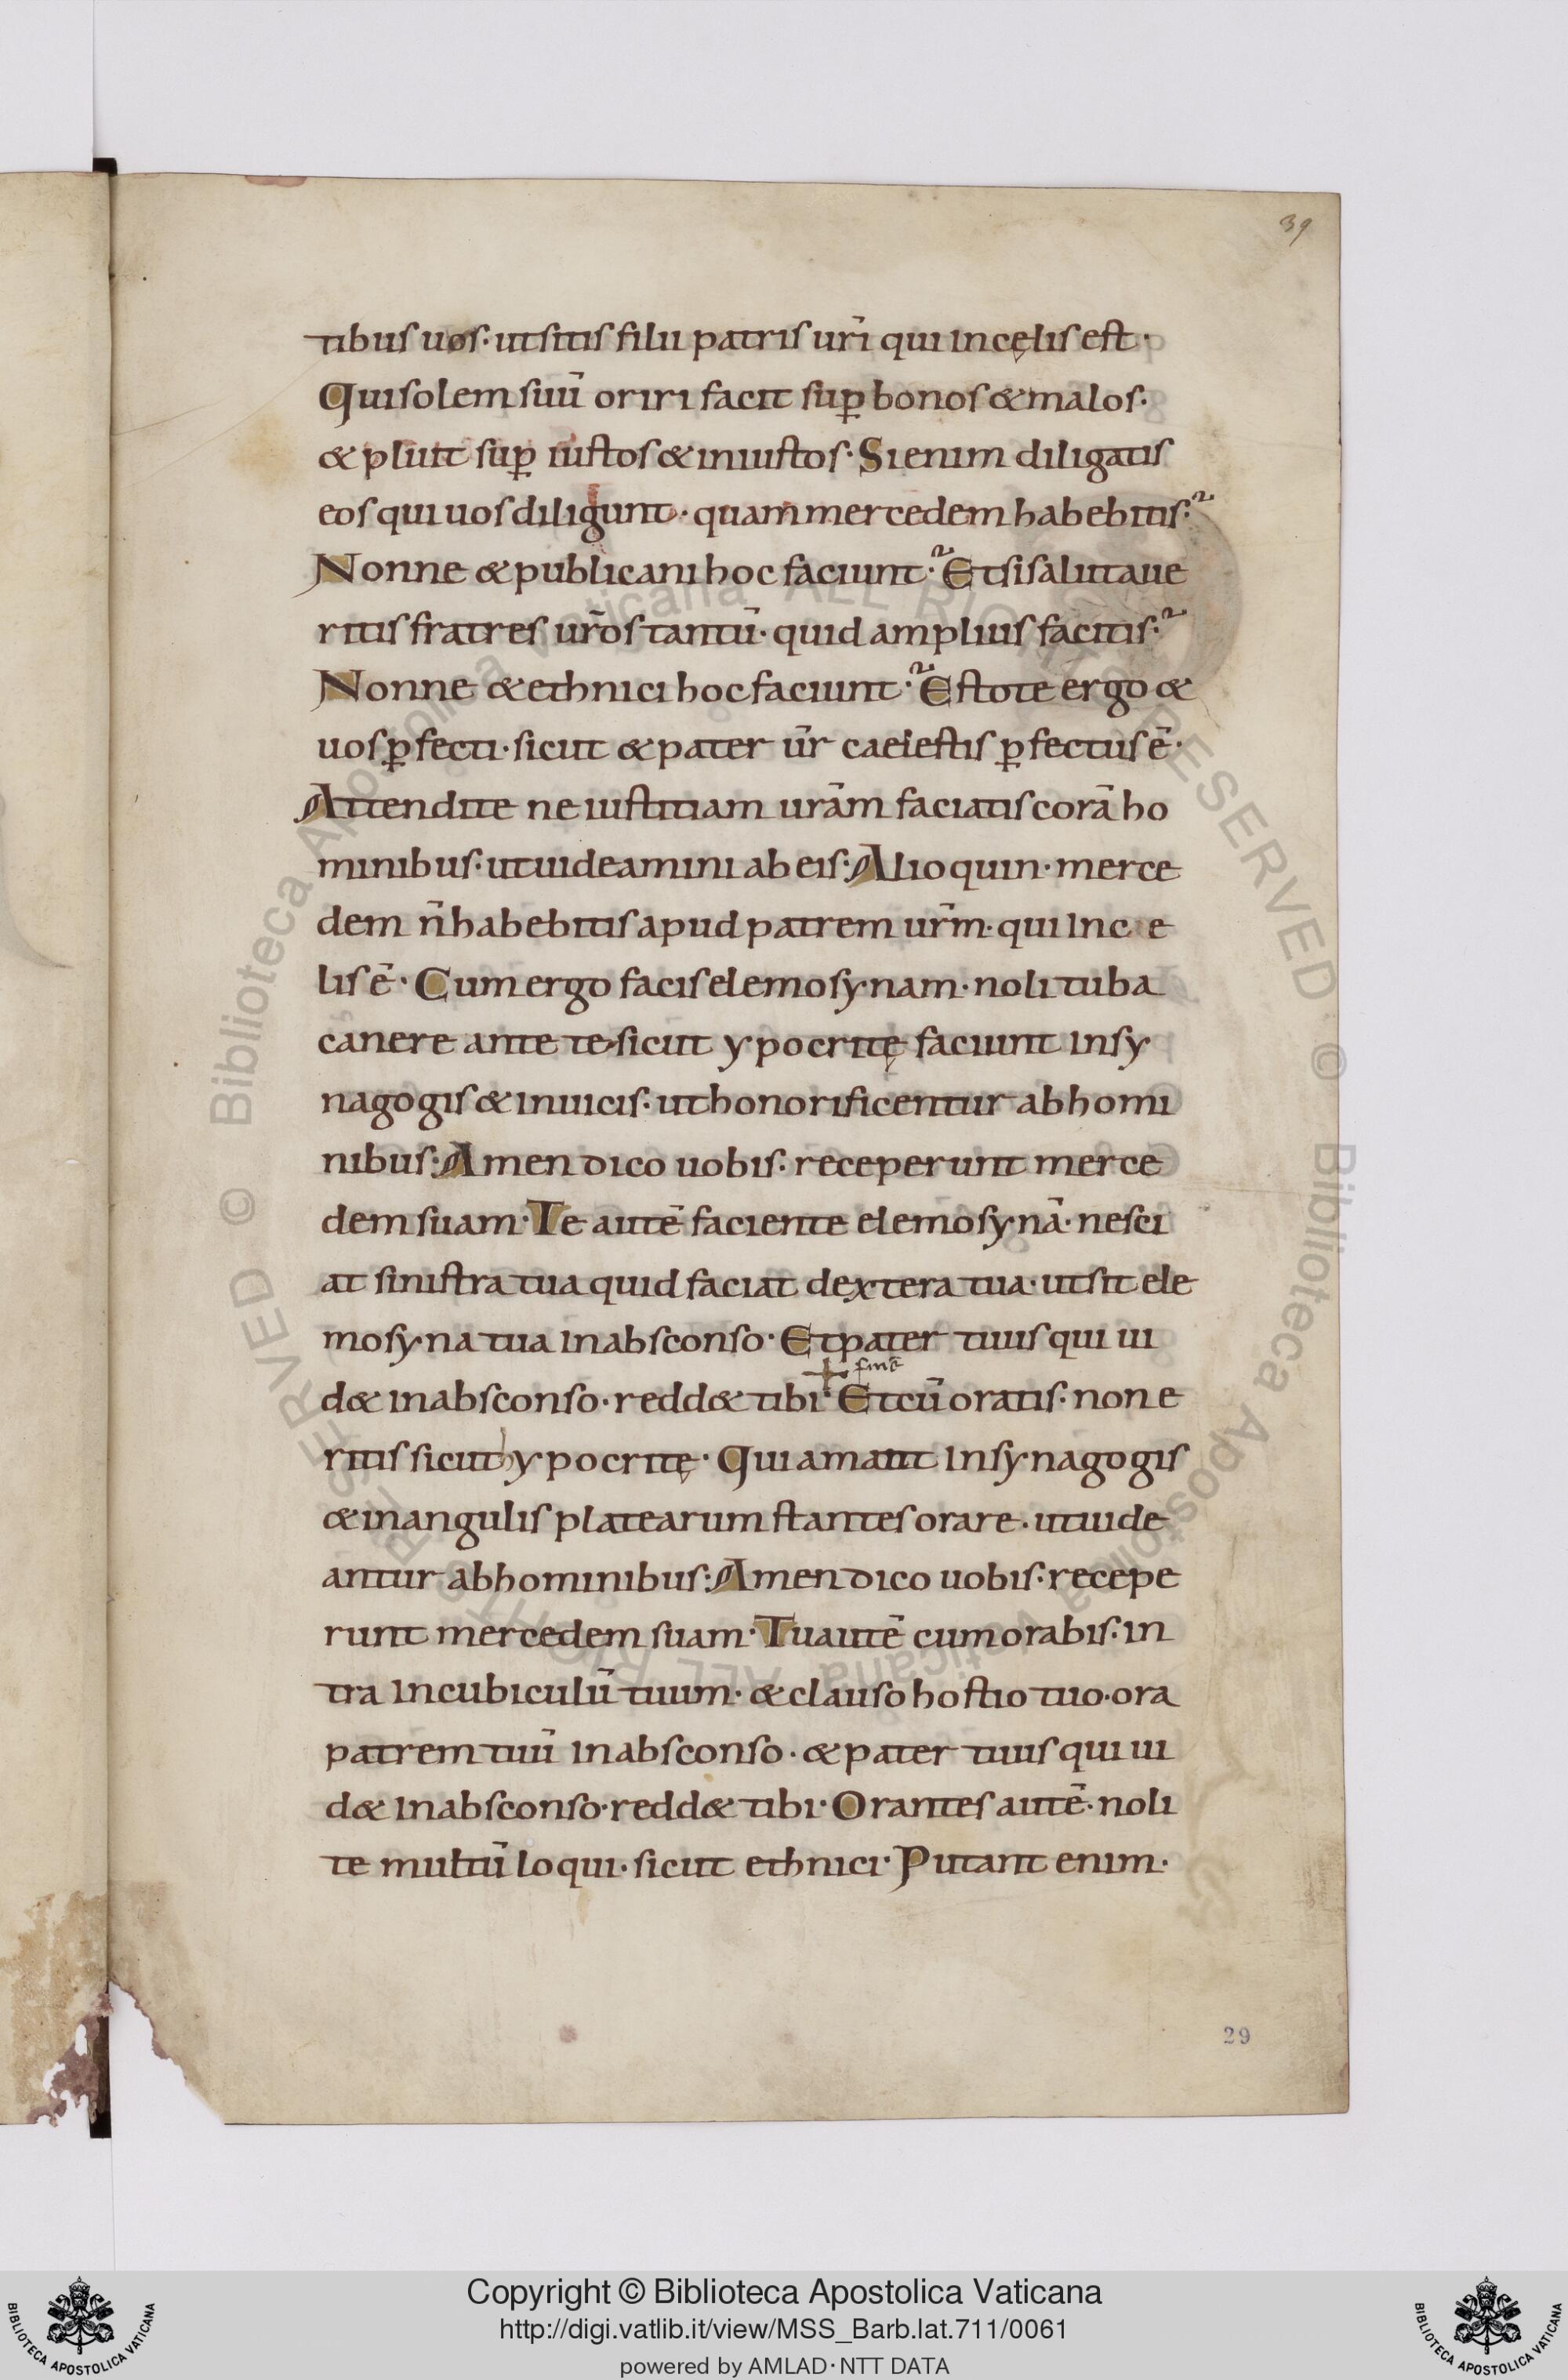 39
tibus uos· ut sitis filii patris uri̅ qui in cęlis est·
Qui solem suu̅ oriri facit sup̅ bonos & malos·
& pluit sup̅ iustos & iniustos· Si enim diligatis
eos qui uos diligunt· quam mercedem habebitis·
Nonne & publicani hoc faciunt· Et si salutaue
ritis fratres ur̅os tantu̅· quid amplius facitis·
Nonne & ethnici hoc faciunt· Estote ergo &
uos p̱fecti· sicut & pater ur̅ caelestis p̱fectus e̅·
Attendite ne iustitiam ura̅m faciatis cora̅ ho
minibus· ut uideamini ab eis· Alioquin· merce
dem n̅ habebitis apud patrem ur̅m· qui in c e
lis e̅· Cum ergo facis elemosynam· noli tuba
canere ante te· sicut ypocritę faciunt in sy
nagogis & in uicis· ut honorificentur ab homi
nibus· Amen dico uobis· receperunt merce
dem suam· Te aute̅ faciente elemosyna̅· nesci
at sinistra tua quid faciat dextera tua· ut sit ele
mosyna tua in absconso· Et pater tuus qui ui
d& in absconso· redd& tibi· Et cu̅ oratis· non e
ritis sicut hypocritę· Qui amant in synagogis
& in angulis platearum stantes orare· ut uide
antur ab hominibus· Amen dico uobis· recepe
runt mercedem suam· Tu aute̅ cum orabis· in
tra in cubiculu̅ tuum· & clauso hostio tuo· ora
patrem tuu̅ in absconso· & pater tuus qui ui
d& in absconso· redd& tibi· Orantes aute̅· noli
te multu̅ loqui· sicut ethnici· Putant enim·
29
© Biblioteca Apostolica Vaticana ALL RIGHTS RESERVED © Biblioteca Apostolica Vaticana ALL RIGHTS RESERVED
Copyright © Biblioteca Apostolica Vaticana
http://digi.vatlib.it/view/MSS_Barb.lat.711/0061
powered by AMLAD·NTT DATA
BIBLIOTECA APOSTOLICA VATICANA
BIBLIOTECA APOSTOLICA VATICANA